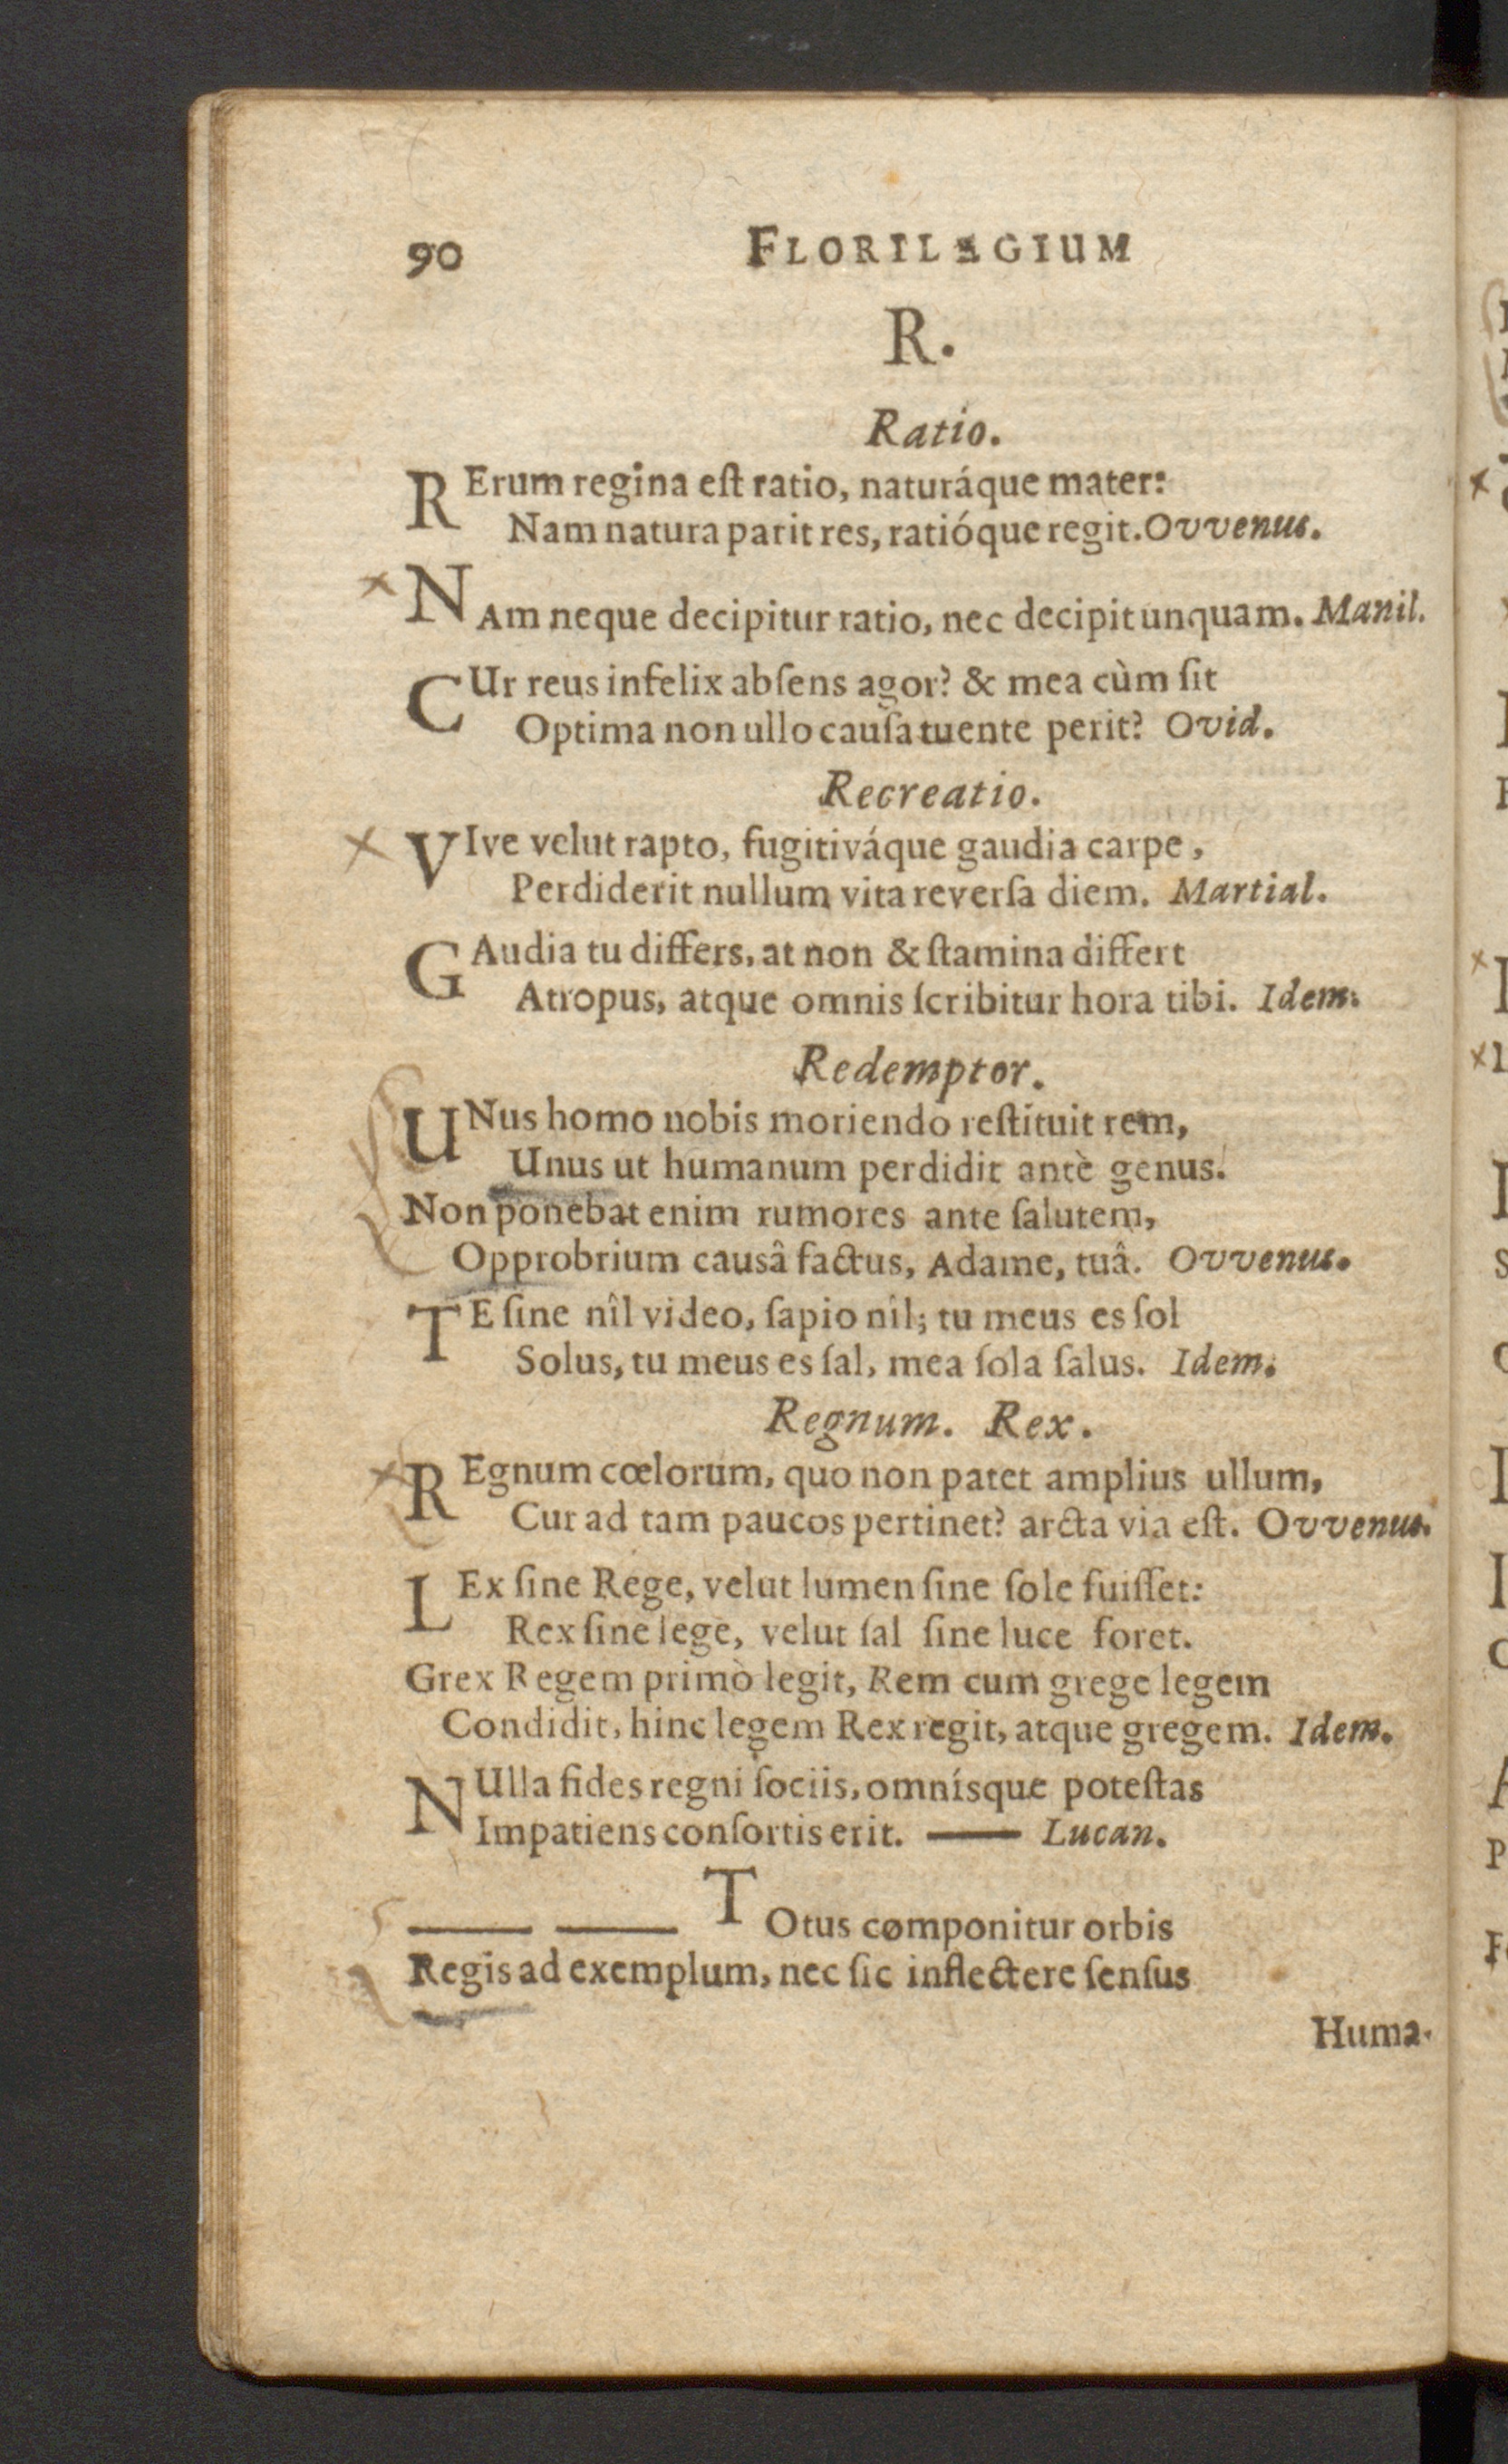 90 FLORILEGIUM
R.
Ratio.
RErum regina eſt ratio, naturáque mater:
Nam natura parit res, ratióque regit. Ovvenus.
NAm neque decipitur ratio, nec decipit unquam. Manil.
CUr reus infelix abſens agor? & mea cùm ſit
Optima non ullo cauſa tuente perit? Ovid.
Recreatio.
VIve velut rapto, fugitiváque gaudia carpe,
Perdiderit nullum vita reverſa diem. Martial.
GAudia tu differs, at non & ſtamina differt
Atropus, atque omnis ſcribitur hora tibi. Idem.
Redemptor.
UNus homo nobis moriendo reſtituit rem,
Unus ut humanum perdidit antè genus.
Non ponebat enim rumores ante ſalutem,
Opprobrium causâ factus, Adame, tuâ. Ovvenus.
TE ſine nîl video, ſapio nîl; tu meus es ſol
Solus, tu meus es ſal, mea ſola ſalus. Idem.
Regnum. Rex.
REgnum cœlorum, quo non patet amplius ullum,
Cur ad tam paucos pertinet? arcta via eſt. Ovvenus.
LEx ſine Rege, velut lumen ſine ſole fuiſſet:
Rex ſine lege, velut ſal ſine luce foret.
Grex Regem primò legit, Rem cum grege legem
Condidit, hinc legem Rex regit, atque gregem. Idem.
NUlla fides regni ſociis, omnísque poteſtas
Impatiens conſortis erit. —— Lucan.
—— —— TOtus componitur orbis
Regis ad exemplum, nec ſic inflectere ſenſus
Huma-